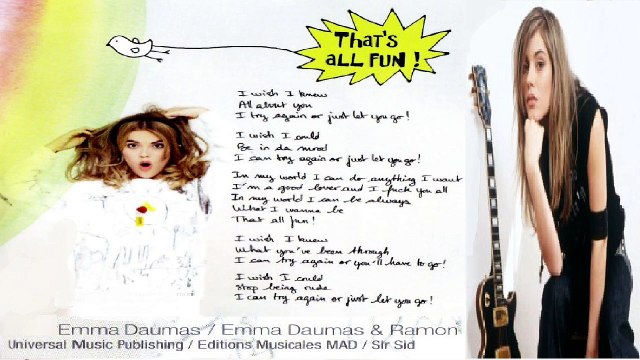 That's
ALL FUN !
I wish I knew
All about you
I try again or just let you go!
I wish I could
Be in da mood
I can try again or just let you go!
In my world I can do anything I want
I'm a good lover and I fuck you all
In my world I can be always
What I wanna be
That all fun!
I wish I knew
What you've been through
I can try again or you'll have to go!
I wish I could
Stop being rude
I can try again or just let you go!
Emma Daumas / Emma Daumas & Ramon
Universal Music Publishing / Editions Musicales MAD / Sir Sid